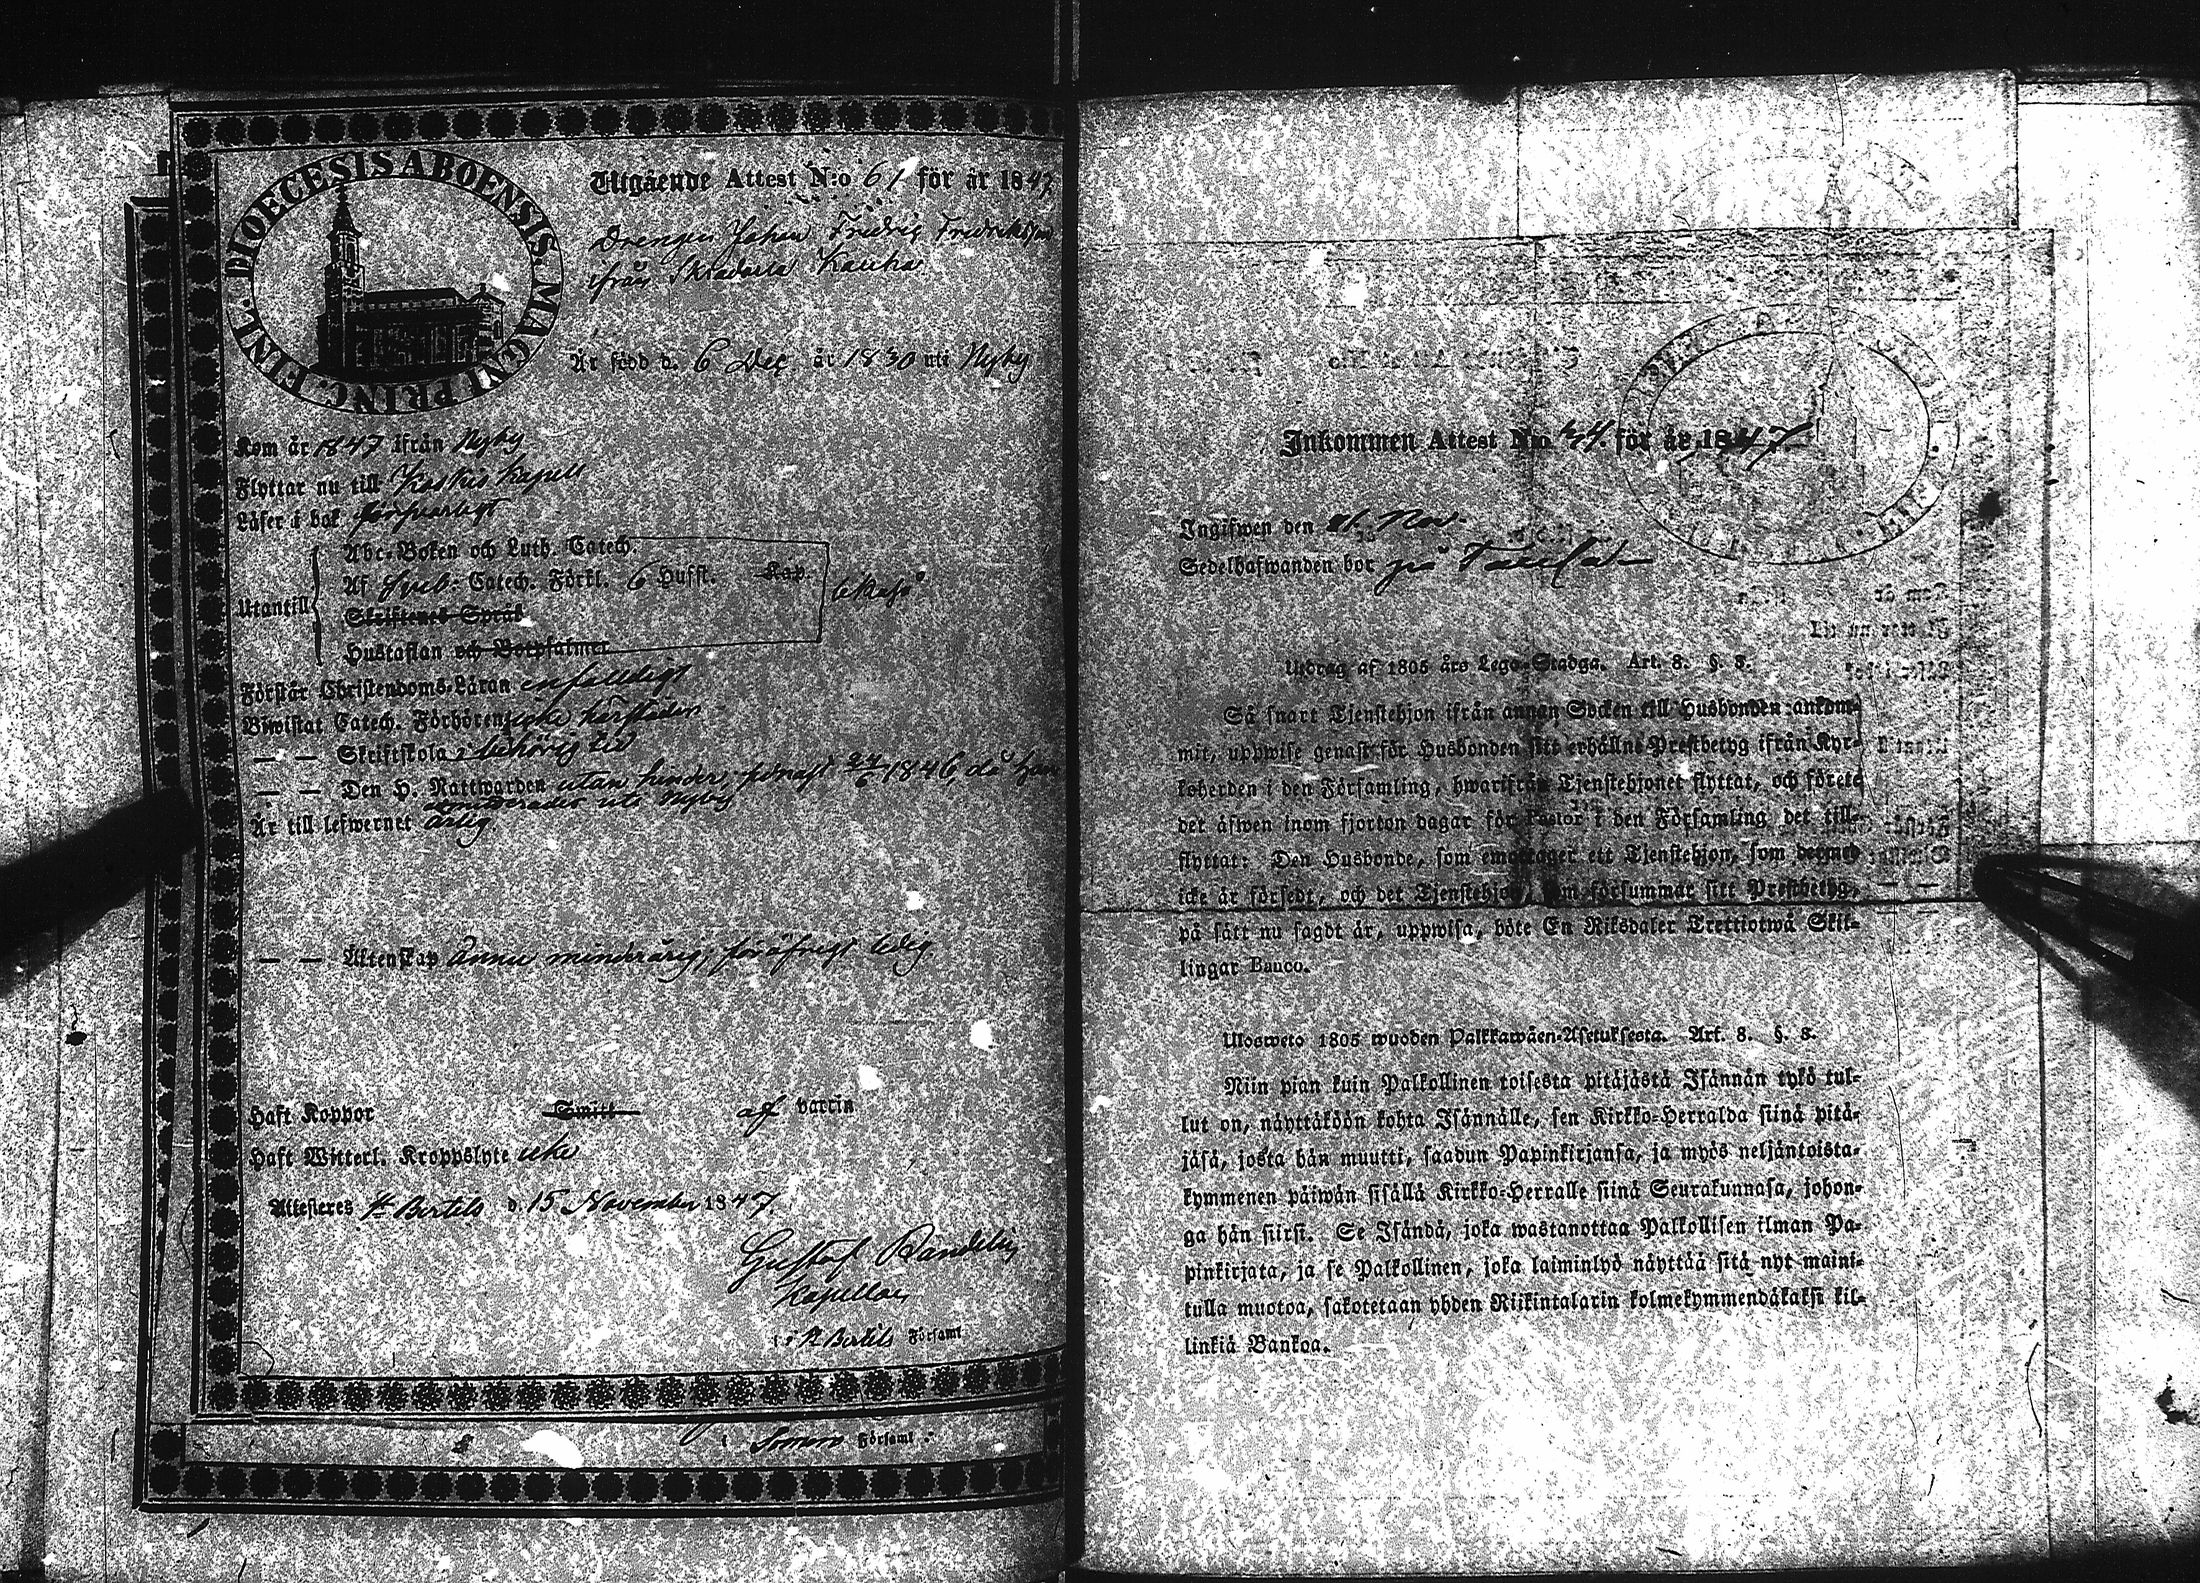 DIOECESIS ABOENSIS. MAGNI PRINC. FINL.
Utgående Attest N:o 61 för år 1847
Drengen Johan Fredric Fredriksson
ifrån Kauha
Är född d. 6 Dec år 1830 uti Nyby
Kom år 1847 ifrån Nyby
Flyttar nu till Koskis Kapell
Läser i bok försvarligt
Utantill
Abc-Boken och Luth. Catech.
Af Sveb. Catech. Förkl. 6 Hufst. Kap.
Skriftenes Språk
Hustaflan och Botpsalmer
Förstår Christendoms-Läran enfaldigt
Biwistat Catech. Förhören icke härstädes
— — Skriftskola i behörig tid
— — Den H. Nattwarden utan hinder, senast 24/6 1846, då han
admitterades uti Nyby
Är till lefwernet ärlig.
— — Äktenskap ännu minderårig, för öfrigt ledig.
Haft Koppor Smitt af vaccin
Haft Witterl. Kroppslyte icke
Attesteras St Bertils d. 15 November 1847.
Gustaf Randelin
Kapellan
i St Bertils Församl
i Somero Församl.
Inkommen Attest N:o 44. för år 1847
Ingifwen den 21 Nov.
Sedelhafwanden bor på
Utdrag af 1805 års Lego-Stadga. Art. 8. §. 8.
Så snart Tjenstehjon ifrån annan Socken till Husbonden ankom-
mit, uppwise genast för Husbonden sitt erhållne Prestbetyg ifrån Kyr-
koherden i den Församling, hwarifrån Tjenstehjonet flyttat, och förete
det äfwen inom fjorton dagar för Pastor i den Församling det till-
flyttat: Den Husbonde, som emottager ett Tjenstehjon, som dermed
icke är försedt, och det Tjenstehjon, som försummar sitt Prestbetyg,
på sätt nu sagdt är, uppwisa, böte En Riksdaler Trettiotwå Skil-
lingar Banco.
Ulosweto 1805 wuoden Palkkawäen-Asetuksesta. Art. 8. §. 8.
Niin pian kuin Palkollinen toisesta pitäjästä Isännän tykö tul-
lut on, näyttäköön kohta Isännälle, sen Kirkko-Herralda siinä pitä-
jäsä, josta hän muutti, saadun Papinkirjansa, ja myös neljäntoista-
kymmenen päiwän sisällä Kirkko-Herralle siinä Seurakunnasa, johon-
ga hän siirsi. Se Isändä, joka wastanottaa Palkollisen ilman Pa-
pinkirjata, ja se Palkollinen, joka laiminlyö näyttää sitä nyt maini-
tulla muotoa, sakotetaan yhden Riikintalarin kolmekymmendäkaksi kil-
linkiä Bankoa.